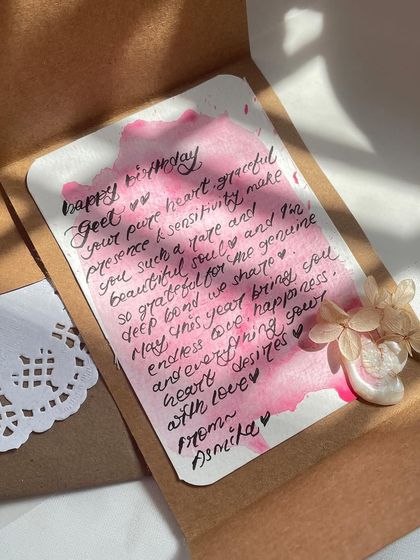 happy birthday
Geet ♡♡
your pure heart, graceful
presence & sensitivity make
you such a rare and
beautiful soul♡ and I'm
so grateful for the genuine
deep bond we share♡.
May this year bring you
endless love, happiness,
and everything your
heart desires♡
with love♡
From~
Asmita♡